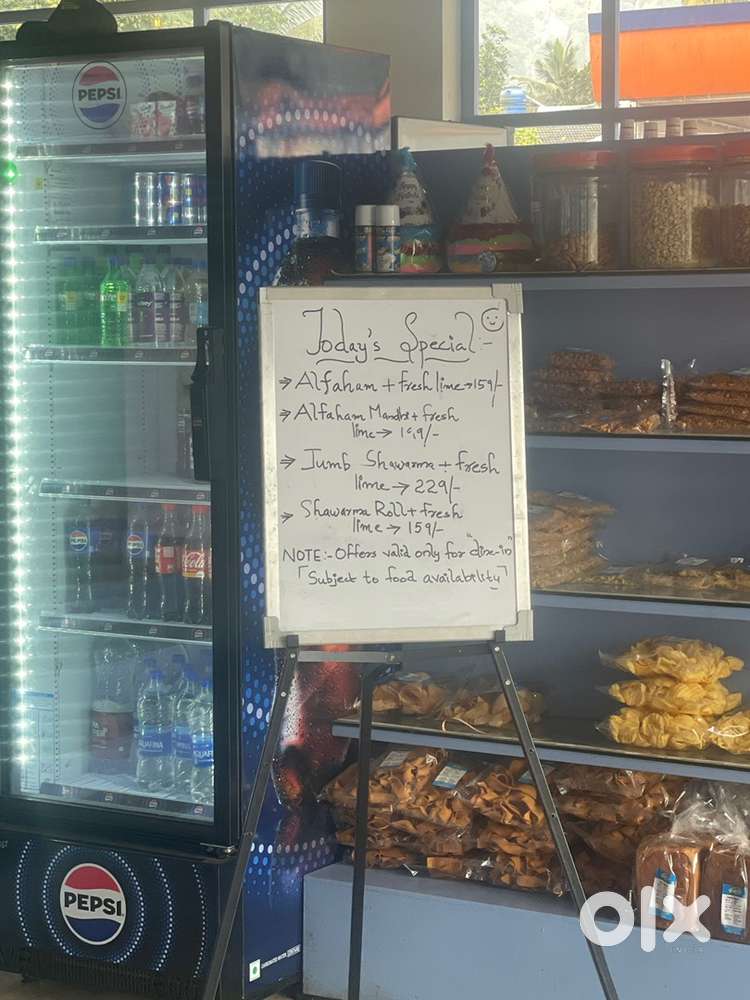 PEPSI
Today's Special:-
→ Alfaham + fresh lime → 159/-
→ Alfaham Mandhi + fresh
lime →
→ Jumb Shawarma + fresh
lime → 229/-
→ Shawarma Roll + fresh
lime → 159/-
NOTE:- Offers valid only for "dine-in"
「Subject to food availability」
Coca-Cola
AQUAFINA
PEPSI
olx
INDIA